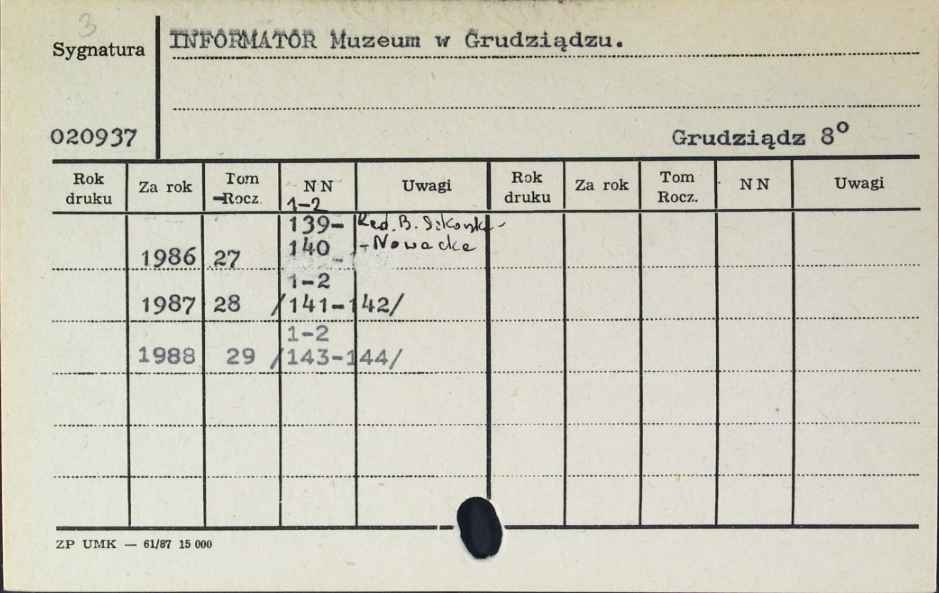 3
Sygnatura
INFORMATOR Muzeum w Grudziądzu.
020937
Grudziądz 8°
Rok druku Za rok Tom Rocz. NN Uwagi Rok druku Za rok Tom Rocz. NN Uwagi
1-2
139- Red. B.
1986 27 140 - Nowacka
1-2
1987 28 /141-142/
1-2
1988 29 /143-144/
ZP UMK — 61/87 15 000